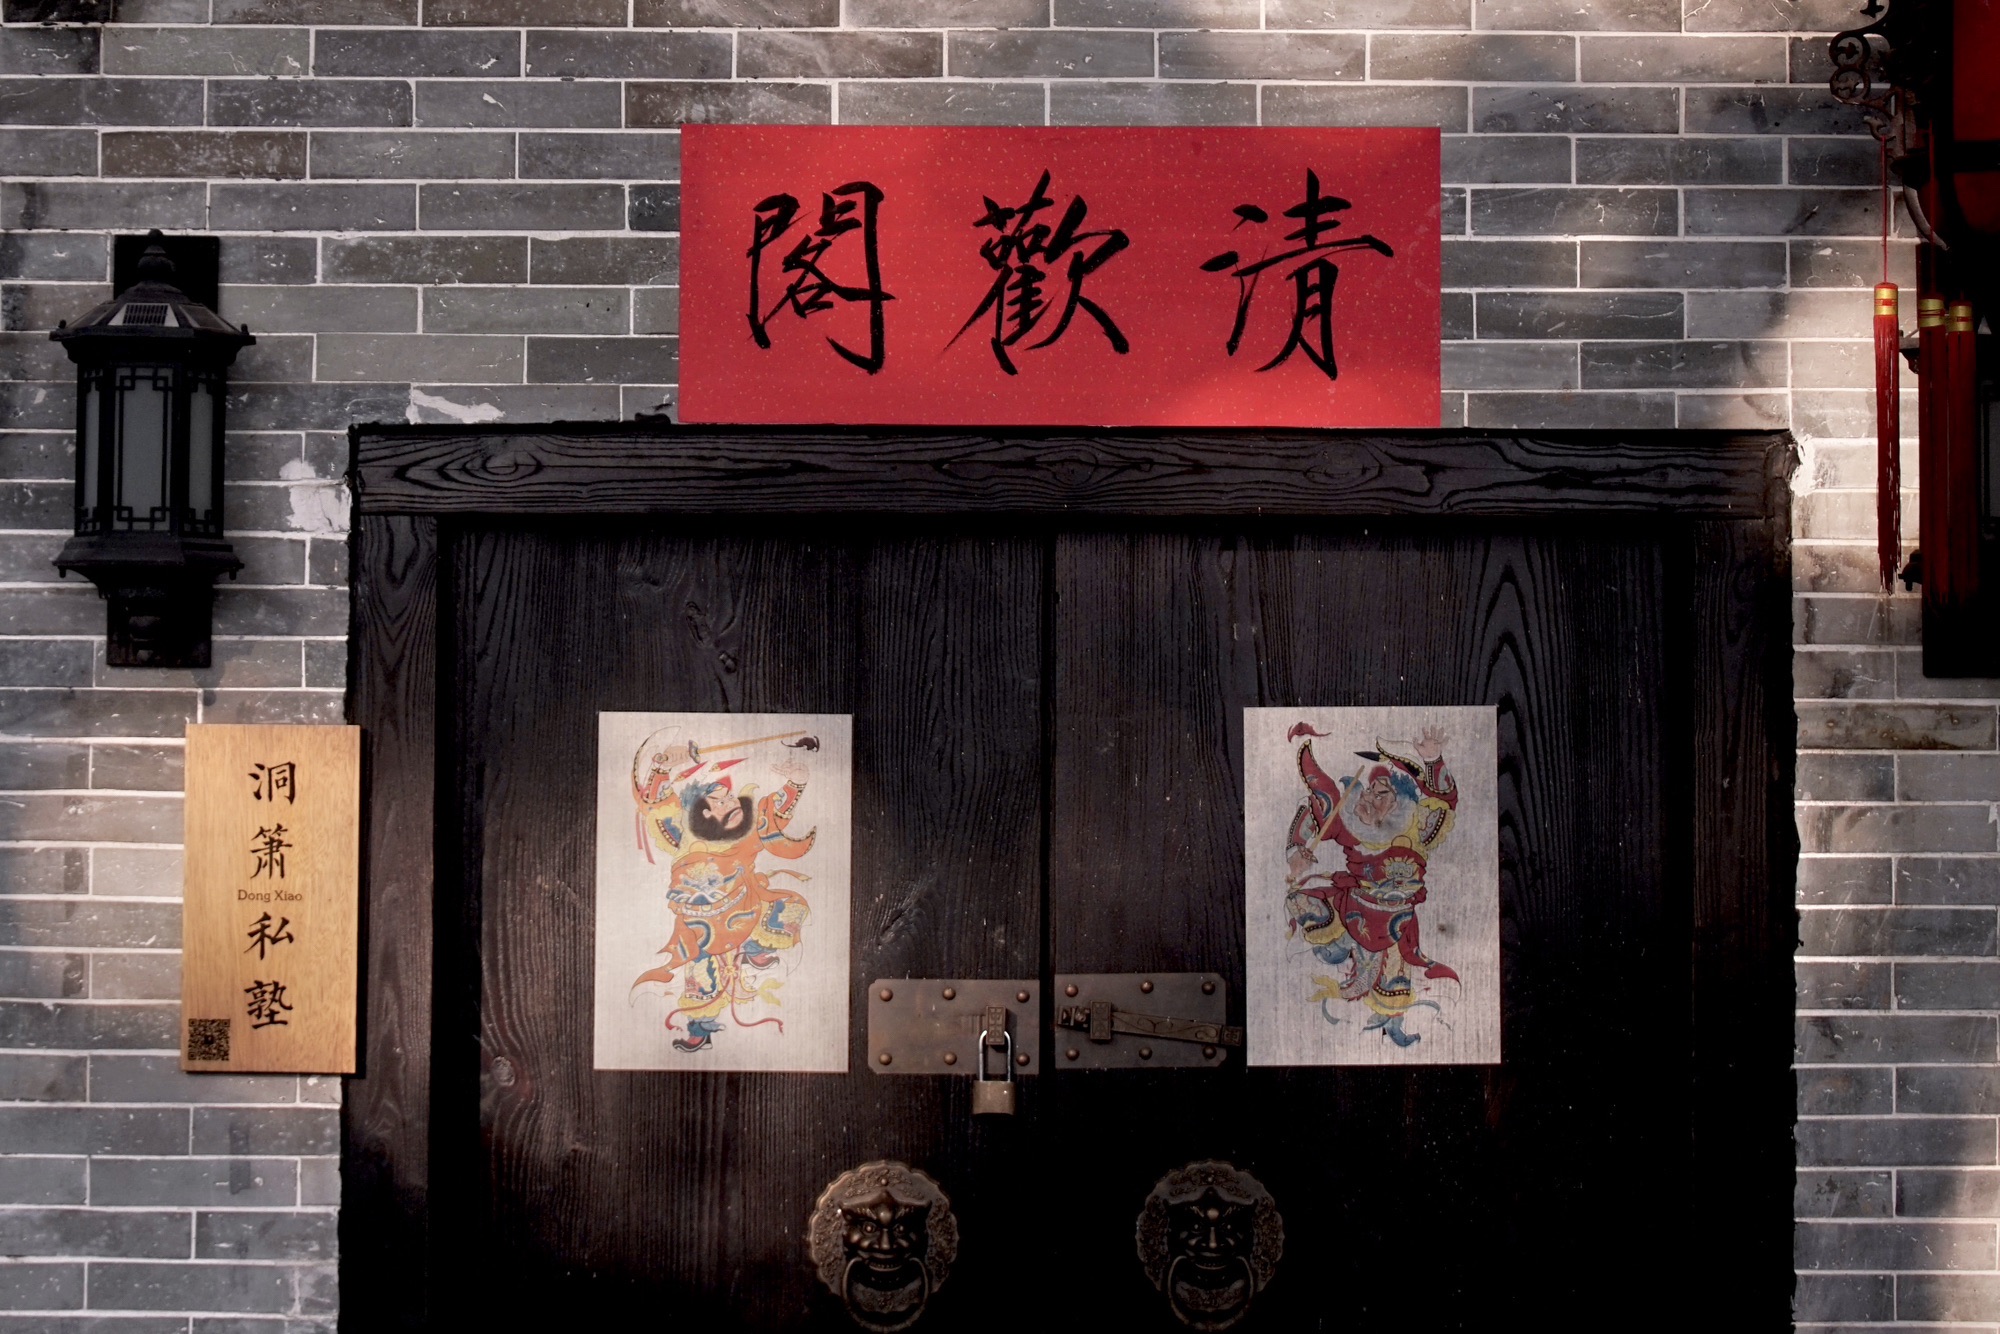 清歡閣
洞
箫
Dong Xiao
私
塾